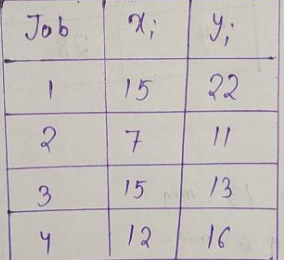 Job x_j y_j
1 15 22
2 7 11
3 15 13
4 12 16